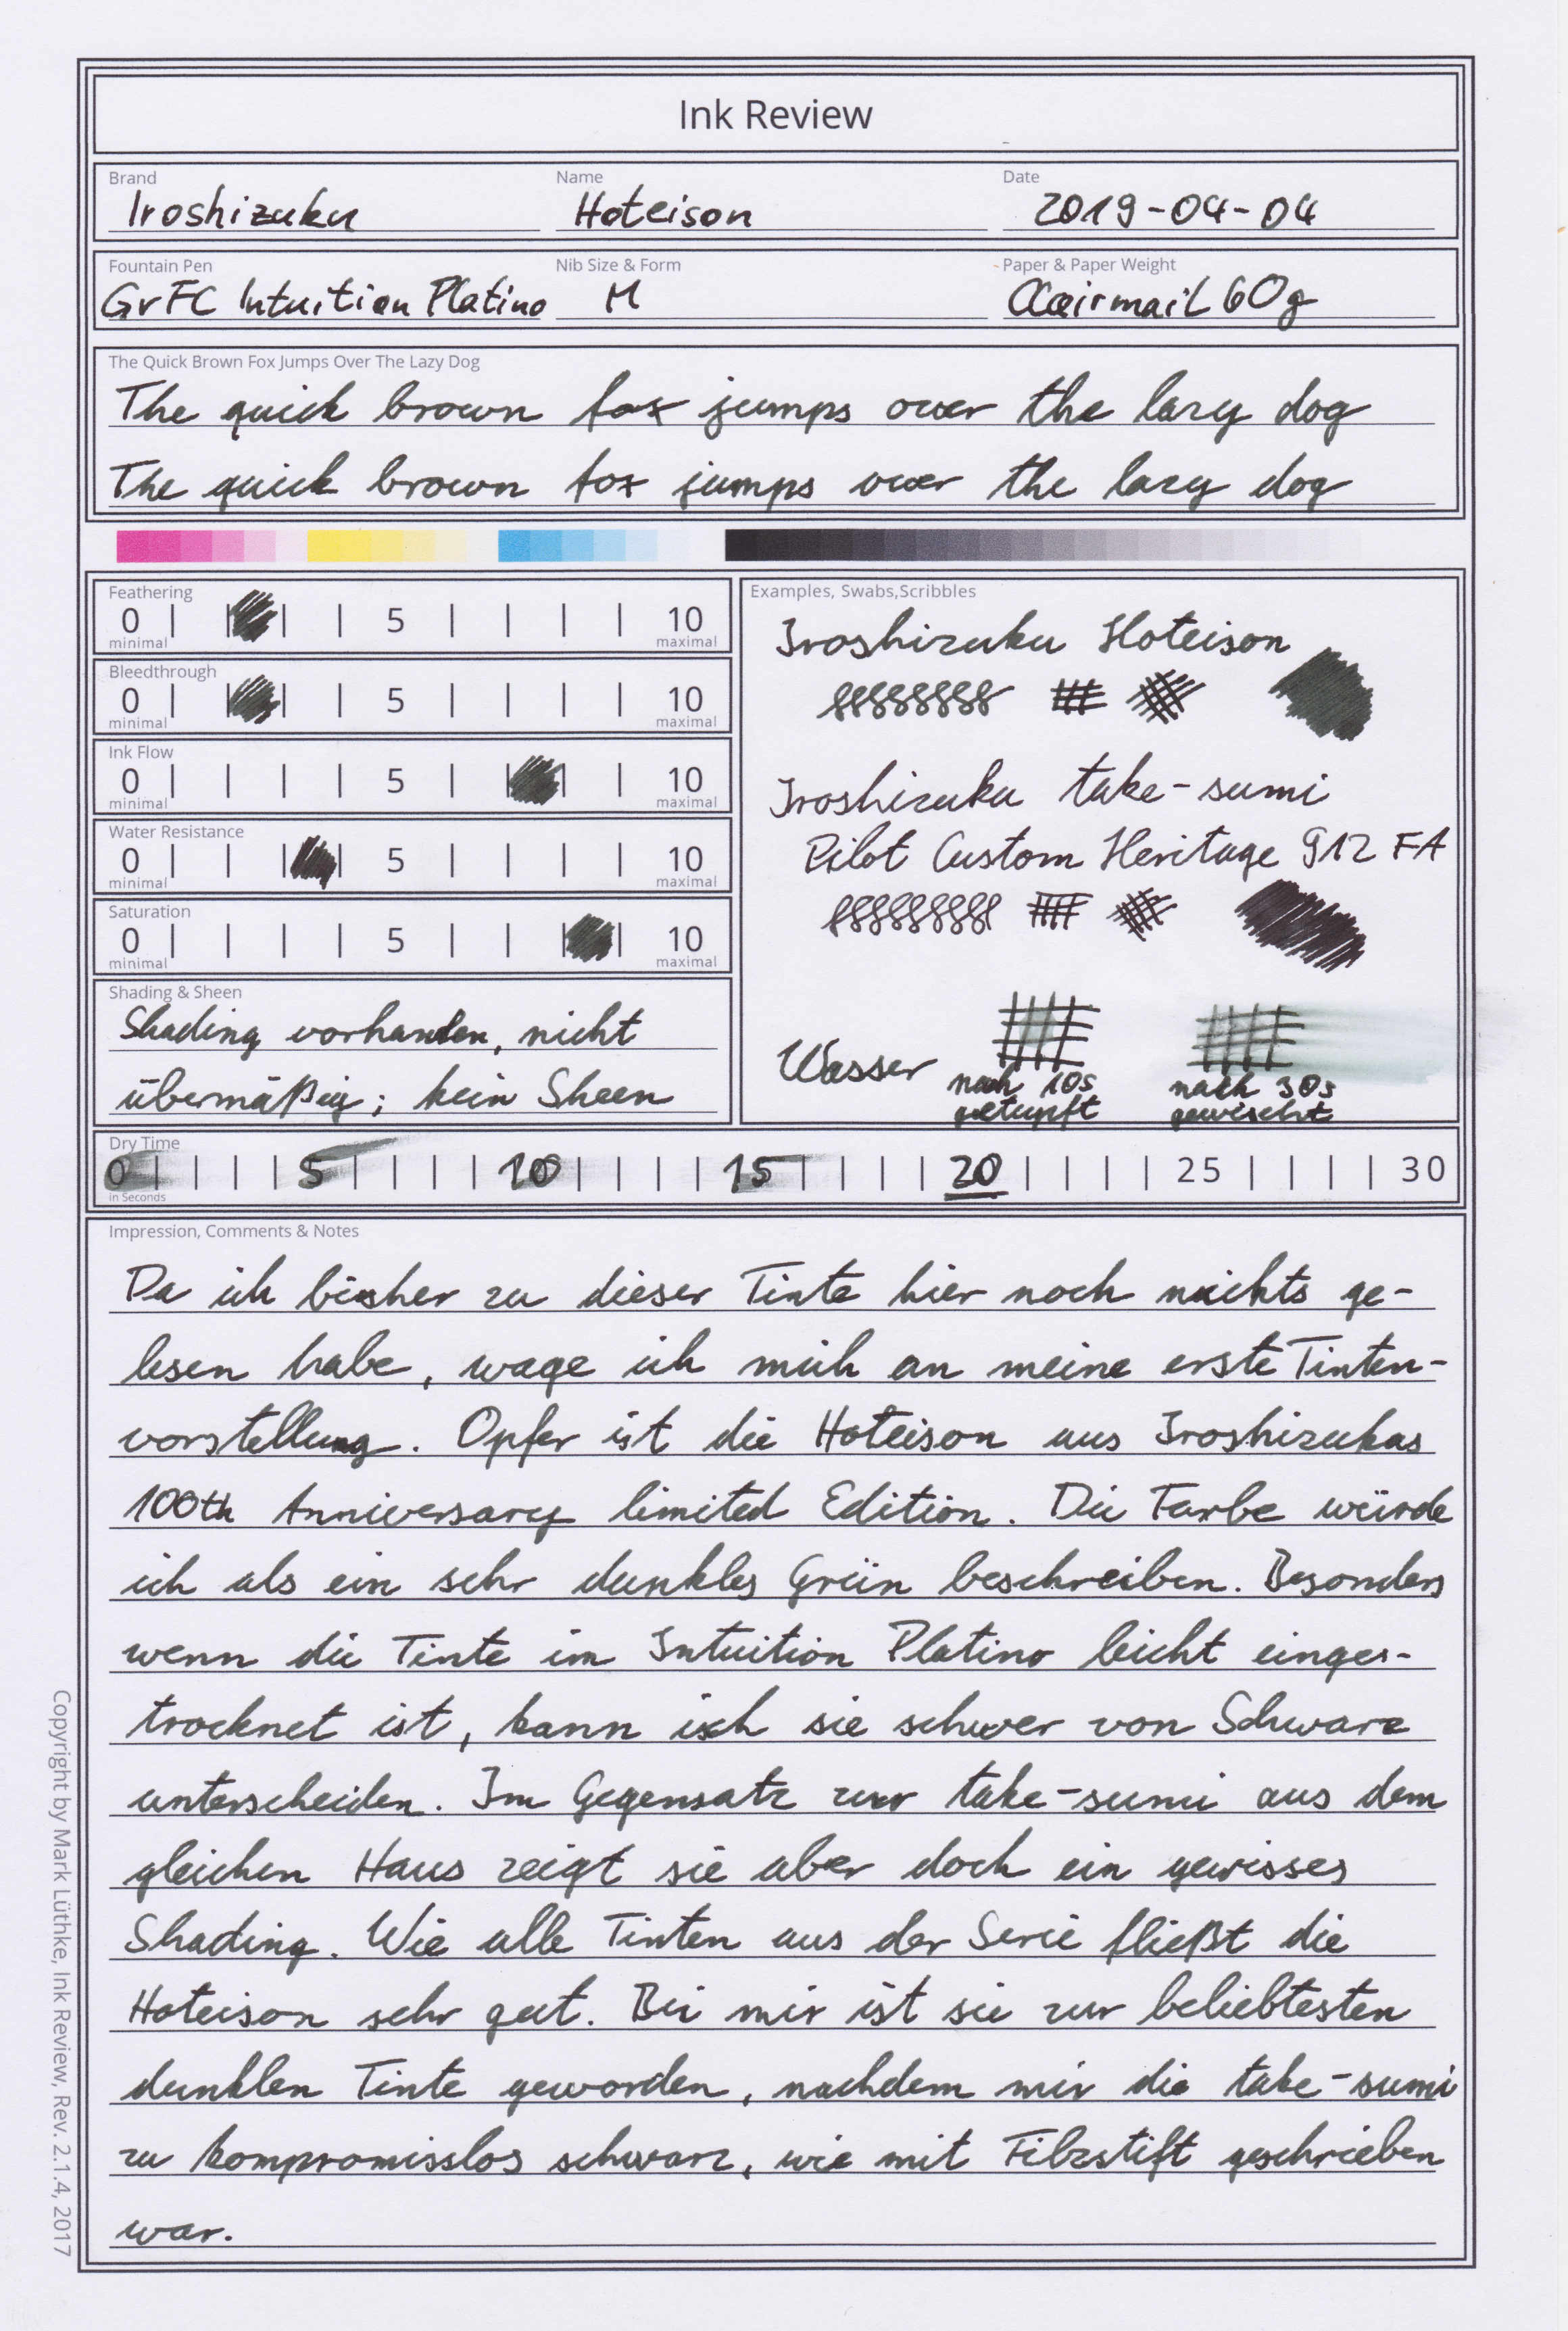 Ink Review
Brand
Iroshizuku
Name
Hoteison
Date
2019-04-04
Fountain Pen
GvFC Intuition Platino
Nib Size & Form
M
Paper & Paper Weight
60g
The Quick Brown Fox Jumps Over The Lazy Dog
The quick brown fox jumps over the lazy dog
The quick brown fox jumps over the lazy dog
Feathering
0 5 10
minimal maximal
Bleedthrough
0 5 10
minimal maximal
Ink Flow
0 5 10
minimal maximal
Water Resistance
0 5 10
minimal maximal
Saturation
0 5 10
minimal maximal
Shading & Sheen
Shading vorhanden, nicht
übermäßig; kein Sheen
Examples, Swabs,Scribbles
Iroshizuku Hoteison
Iroshizuku take-sumi
Pilot Custom Heritage 912 FA
Wasser
nach 10s
getupft
nach 30s
gewischt
Dry Time
0 5 10 15 20 25 30
in Seconds
Impression, Comments & Notes
Da ich bisher zu dieser Tinte hier noch nichts ge-
lesen habe, wage ich mich an meine erste Tinten-
vorstellung. Opfer ist die Hoteison aus Iroshizukus
100th Anniversary limited Edition. Die Farbe würde
ich als ein sehr dunkles Grün beschreiben. Besonders
wenn die Tinte im Intuition Platino leicht einge-
trocknet ist, kann ich sie schwer von Schwarz
unterscheiden. Im Gegensatz zur take-sumi aus dem
gleichen Haus zeigt sie aber doch ein gewisses
Shading. Wie alle Tinten aus der Serie fließt die
Hoteison sehr gut. Bei mir ist sie zur beliebtesten
dunklen Tinte geworden, nachdem mir die take-sumi
zu kompromisslos schwarz, wie mit Filzstift geschrieben
war.
Copyright by Mark Lüthke, Ink Review, Rev. 2.1.4, 2017